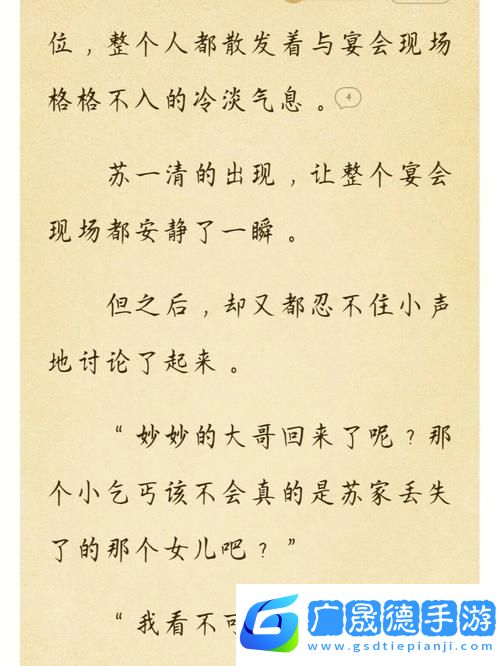 位，整个人都散发着与宴会现场
格格不入的冷淡气息。4
苏一清的出现，让整个宴会
现场都安静了一瞬。
但之后，却又都忍不住小声
地讨论了起来。
“妙妙的大哥回来了呢？那
个小乞丐该不会真的是苏家丢失
了的那个女儿吧？”
“我看不可
广晟德手游
www.gsdtiepianji.com